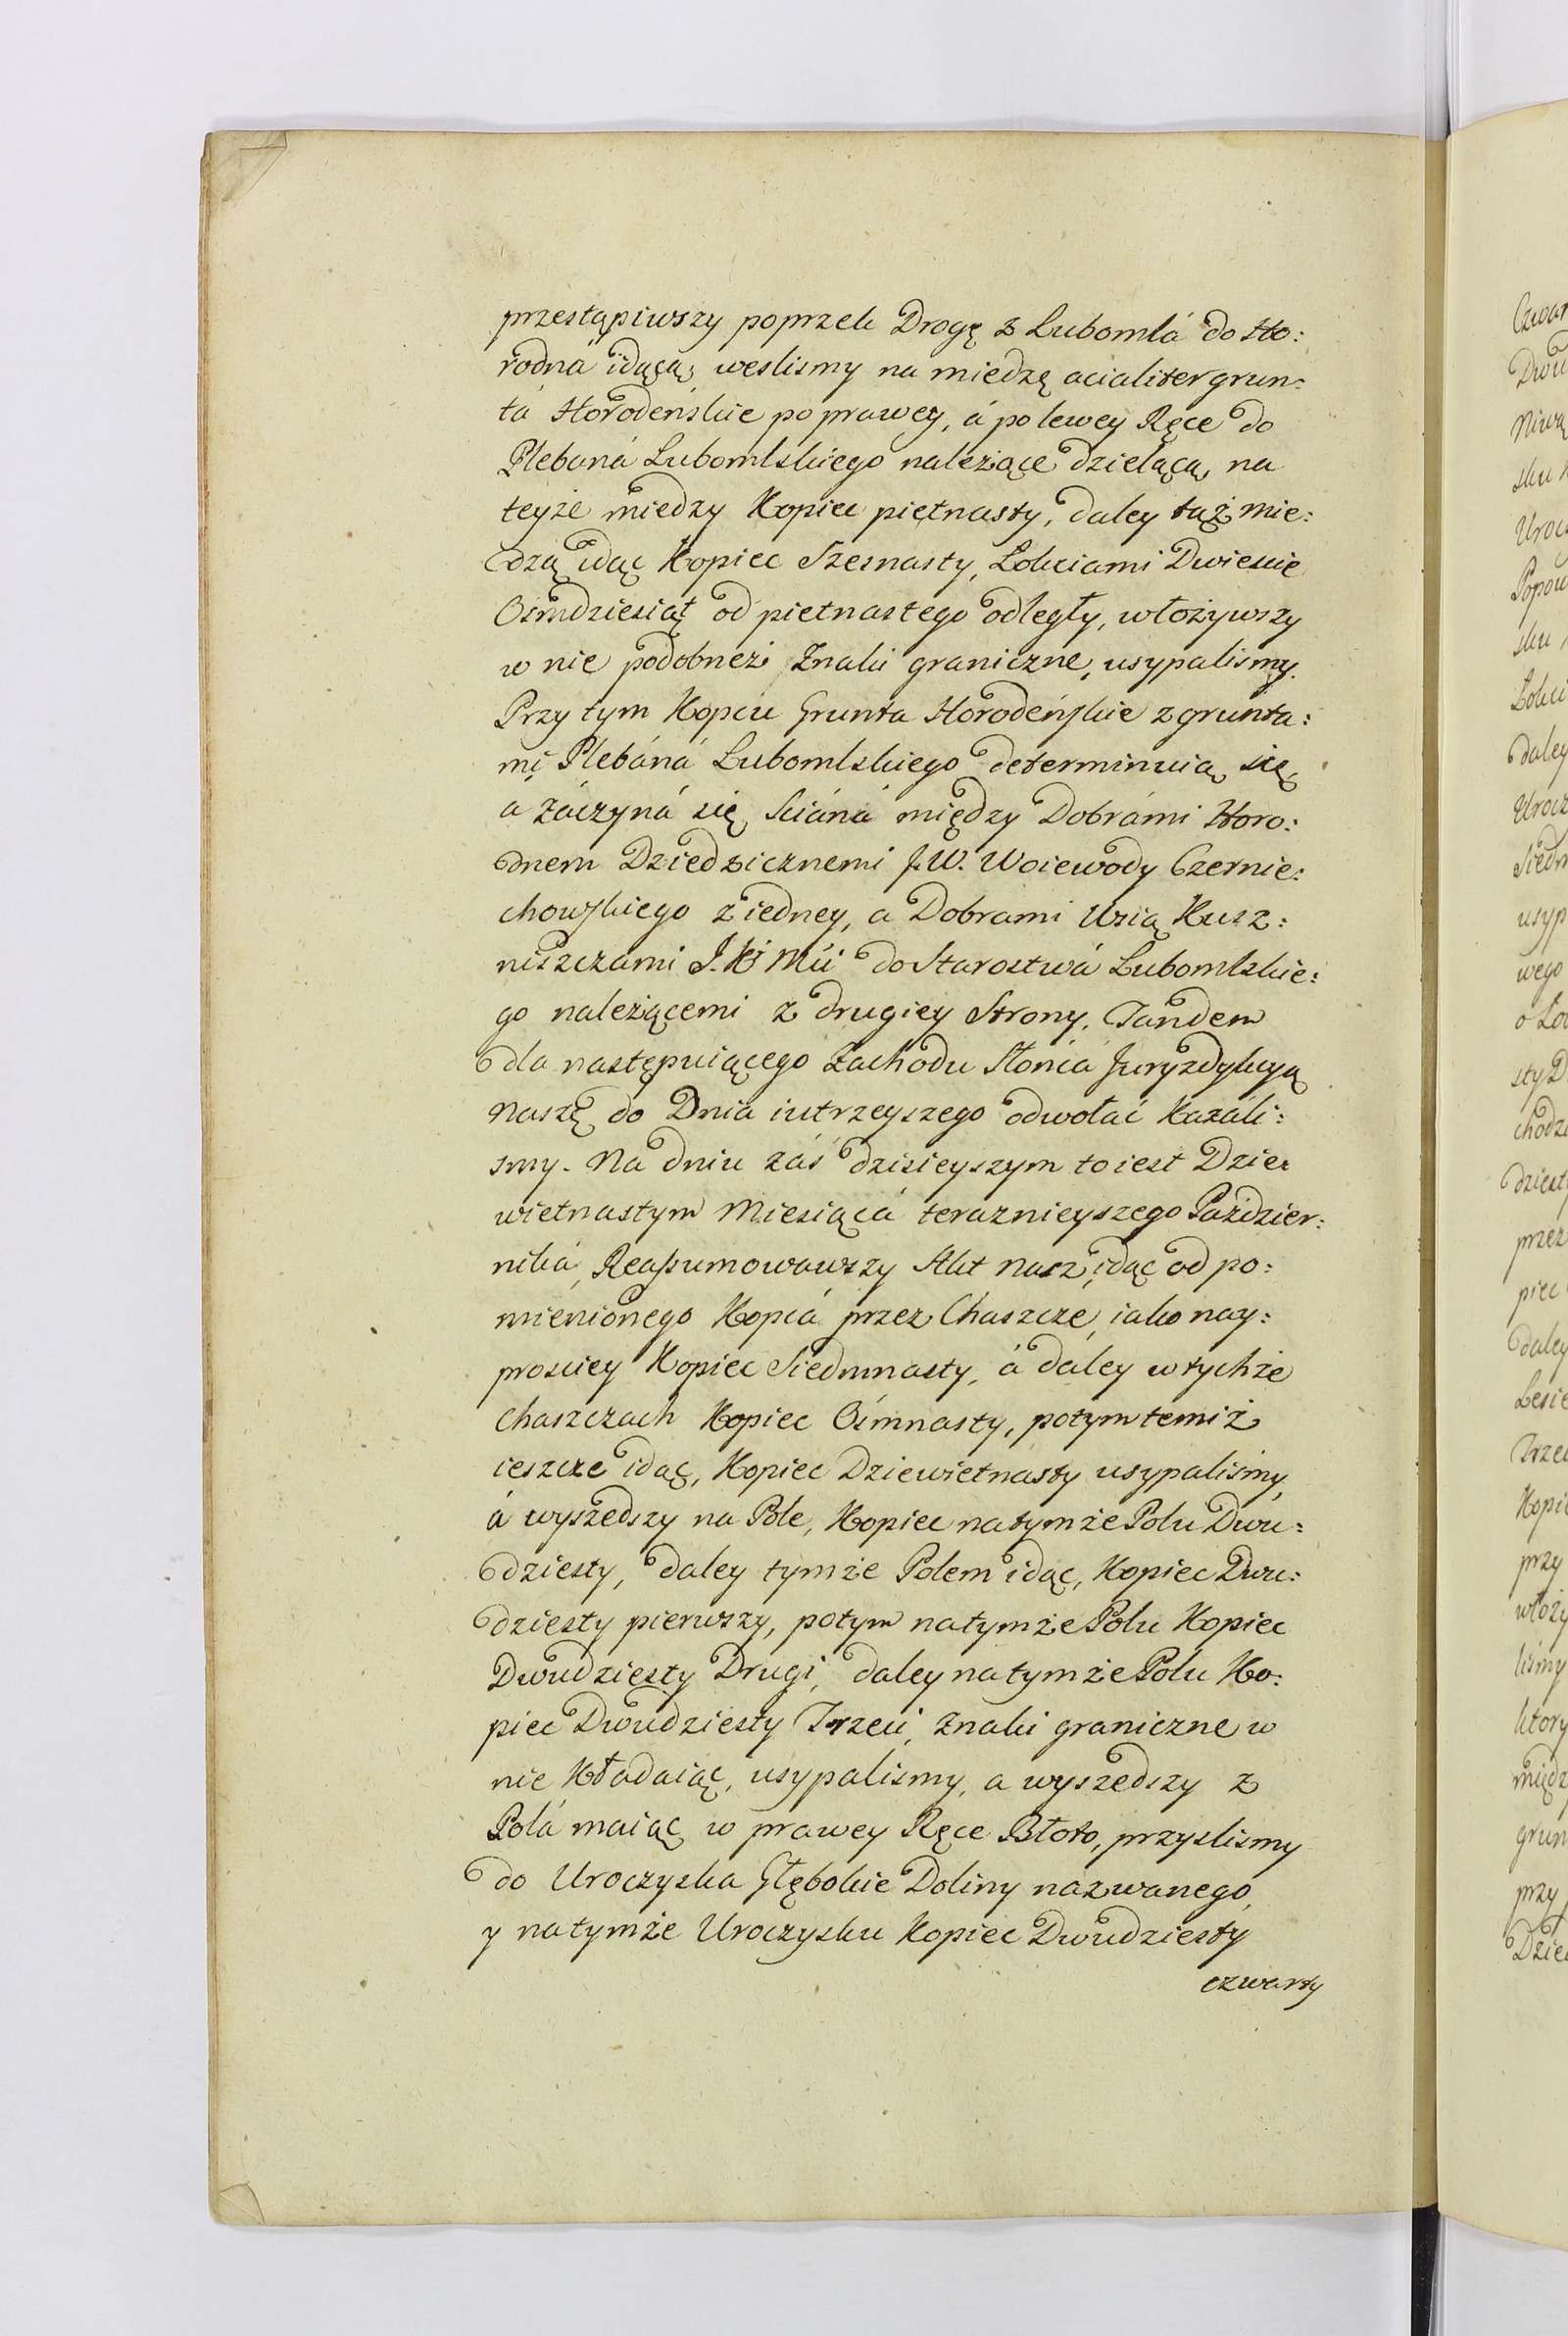 przestąpiwszy poprzek Drogę z Lubomlá do Ho:
rodna idącą, weslismy na miedzę acialiter grun:
tá Horodeńskie po prawey, á po lewey Ręce do
Plebaná Lubomlskiego należące dzielącą, na
teyże miedzy Kopiec piętnasty, daley taż mie:
dzą idąc Kopiec Szesnasty, Łokciami Dwiescie
Osmdziesiąt od pietnastego odległy, włożywszy
w nie podobneż Znaki graniczne, usypalismy.
Przy tym Kopcu Grunta Horodeńskie z grunta:
mi Plebáná Lubomlskiego determinuią się,
a záczyná się Sciáná między Dobrámi Horo:
dnem Dziedzicznemi J. W. Woiewody Czernie:
chowskiego z iedney, a Dobrami Wsią Kusz:
niszczami J. K Mći do Starostwá Lubomlskie:
go należącemi z drugiey Strony. Tandem
dla następuiącego Zachodu Słońca Juryzdykcyą
naszę do Dnia iutrzeyszego odwołać Kazáli:
smy. Na dniu záś dzisieyszym to iest Dzie:
wietnastym Miesiącá teraznieyszego Paździer:
niká, Reassumowawszy Akt nasz, idąc od po:
mienionego Kopcá przez Chaszcze, iako nay:
prosciey Kopiec Siedmnasty, á daley w tychże
Chaszczach Kopiec Osmnasty, potym temiż
ieszcze idąc, Kopiec Dziewietnasty usypaliśmy,
á wyszedszy na Pole, Kopiec na tymże Polu Dwu:
dziesty, daley tymże Polem idąc, Kopiec Dwu:
dziesty pierwszy, potym na tymże Polu Kopiec
Dwudziesty Drugi, daley na tymże Polu Ko:
piec Dwudziesty Trzeci, Znaki graniczne w
nie Kładaiąc, usypalismy, a wyszedszy z
Polá maiąc w prawey Ręce Błoto, przyslismy
do Uroczyska Głębokie Doliny nazwanego,
y na tymże Uroczysku Kopiec Dwudziesty
czwarty